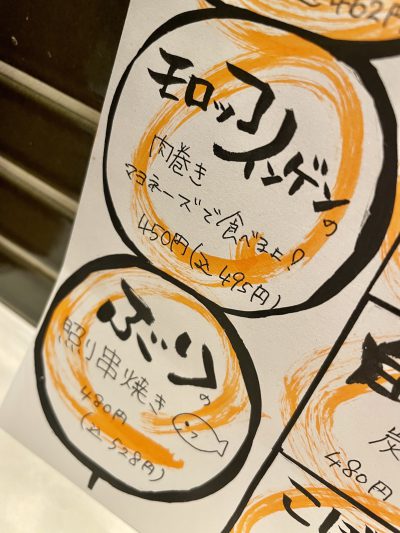 462円
モロッコ
インゲンの
肉巻き
マヨネーズで食べるよ?
450円(込495円)
ぶりの
照り串焼き
480円
(込528円)
炭
480円
こに